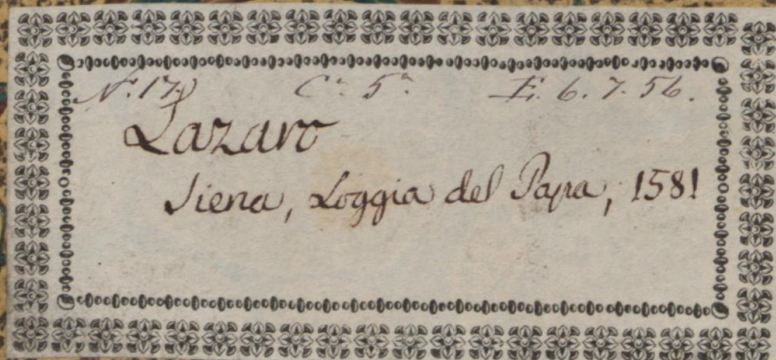 N.° 178 C.ª 5.ª E. 6. 7. 56.
Lazaro
Siena, Loggia del Papa, 1581